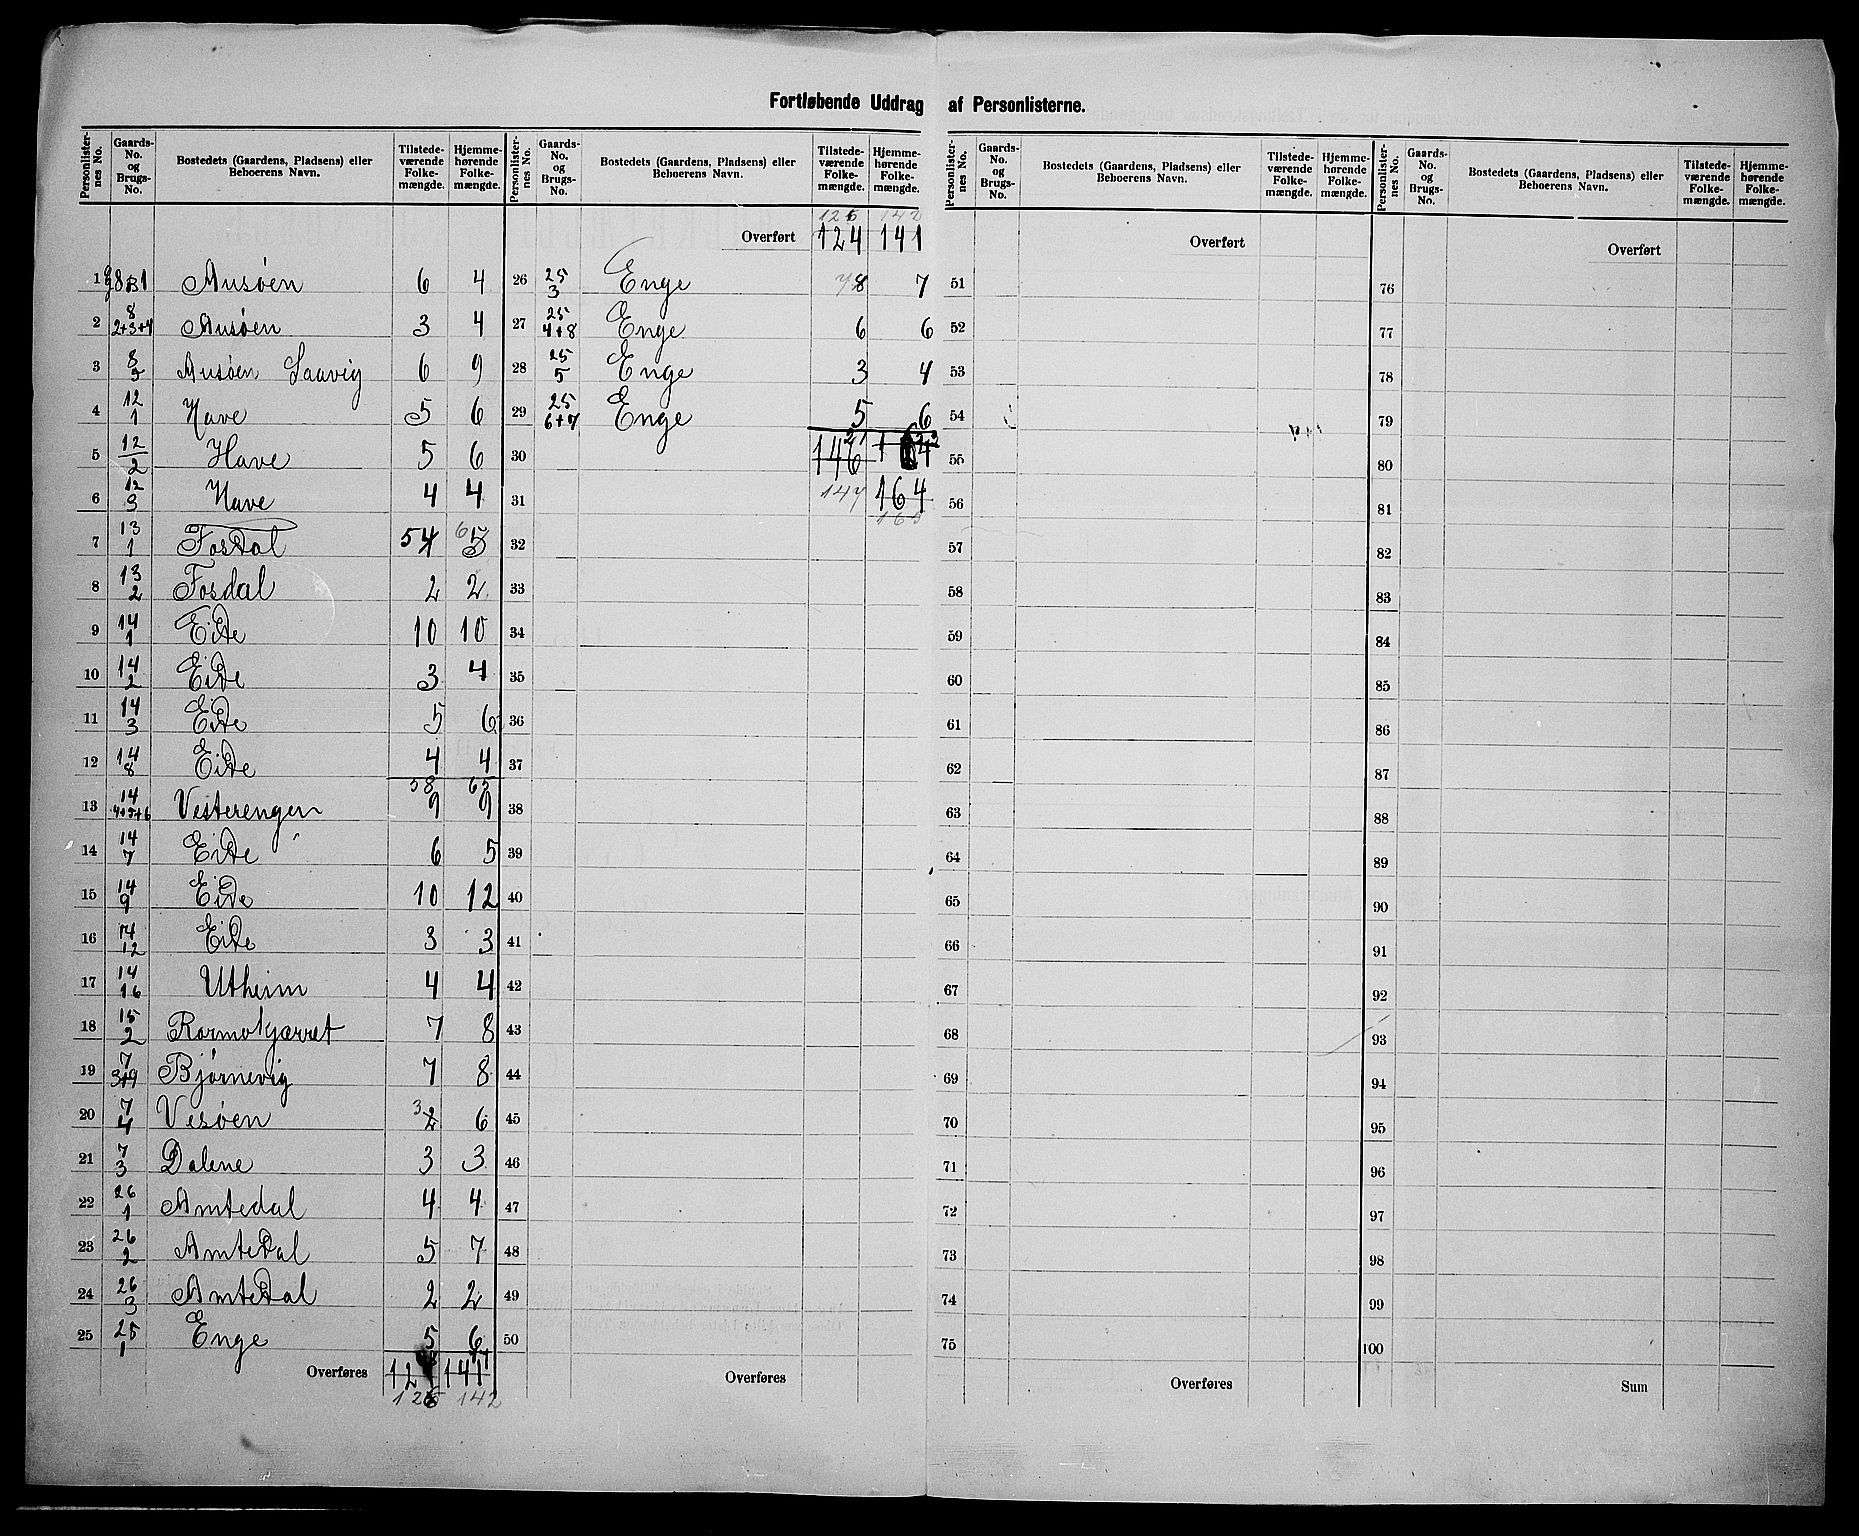 Fortløbende Uddrag af Personlisterne.
Personlisternes No. Gaards-No. og Brugs-No. Bostedets (Gaardens, Pladsens) eller Beboerens Navn. Tilstedeværende Folkemængde. Hjemmehørende Folkemængde.
1 8 1 Ausøen 6 4
2 8 2+3+4 Ausøen 3 4
3 8 5 Ausøen Saavig 6 9
4 12 1 Have 5 6
5 12 2 Have 5 6
6 12 3 Have 4 4
7 13 1 Fosdal 5 4 6 5
8 13 2 Fosdal 2 2
9 14 1 Eide 10 10
10 14 2 Eide 3 4
11 14 3 Eide 5 6
12 14 8 Eide 4 4
58 65
13 14 4+5+6 Vesterengen 9 9
14 14 7 Eide 6 5
15 14 9 Eide 10 12
16 14 12 Eide 3 3
17 14 16 Utheim 4 4
18 15 2 Rormokjærret 7 8
19 7 3+9 Bjørnevig 7 8
20 7 4 Vesøen 3 2 6
21 7 3 Dalene 3 3
22 26 1 Amtedal 4 4
23 26 2 Amtedal 5 7
24 26 3 Amtedal 2 2
25 25 1 Enge 5 6
Overføres 141
126 142
Personlisternes No. Gaards-No. og Brugs-No. Bostedets (Gaardens, Pladsens) eller Beboerens Navn. Tilstedeværende Folkemængde. Hjemmehørende Folkemængde.
126 142
Overført 124 141
26 25 3 Enge 7 8 7
27 25 4+8 Enge 6 6
28 25 5 Enge 3 4
29 25 6+7 Enge 5 6
30 146
31 147 164
165
32
33
34
35
36
37
38
39
40
41
42
43
44
45
46
47
48
49
50
Overføres
Personlisternes No. Gaards-No. og Brugs-No. Bostedets (Gaardens, Pladsens) eller Beboerens Navn. Tilstedeværende Folkemængde. Hjemmehørende Folkemængde.
Overført
51
52
53
54
55
56
57
58
59
60
61
62
63
64
65
66
67
68
69
70
71
72
73
74
75
Overføres
Personlisternes No. Gaards-No. og Brugs-No. Bostedets (Gaardens, Pladsens) eller Beboerens Navn. Tilstedeværende Folkemængde. Hjemmehørende Folkemængde.
Overført
76
77
78
79
80
81
82
83
84
85
86
87
88
89
90
91
92
93
94
95
96
97
98
99
100
Sum